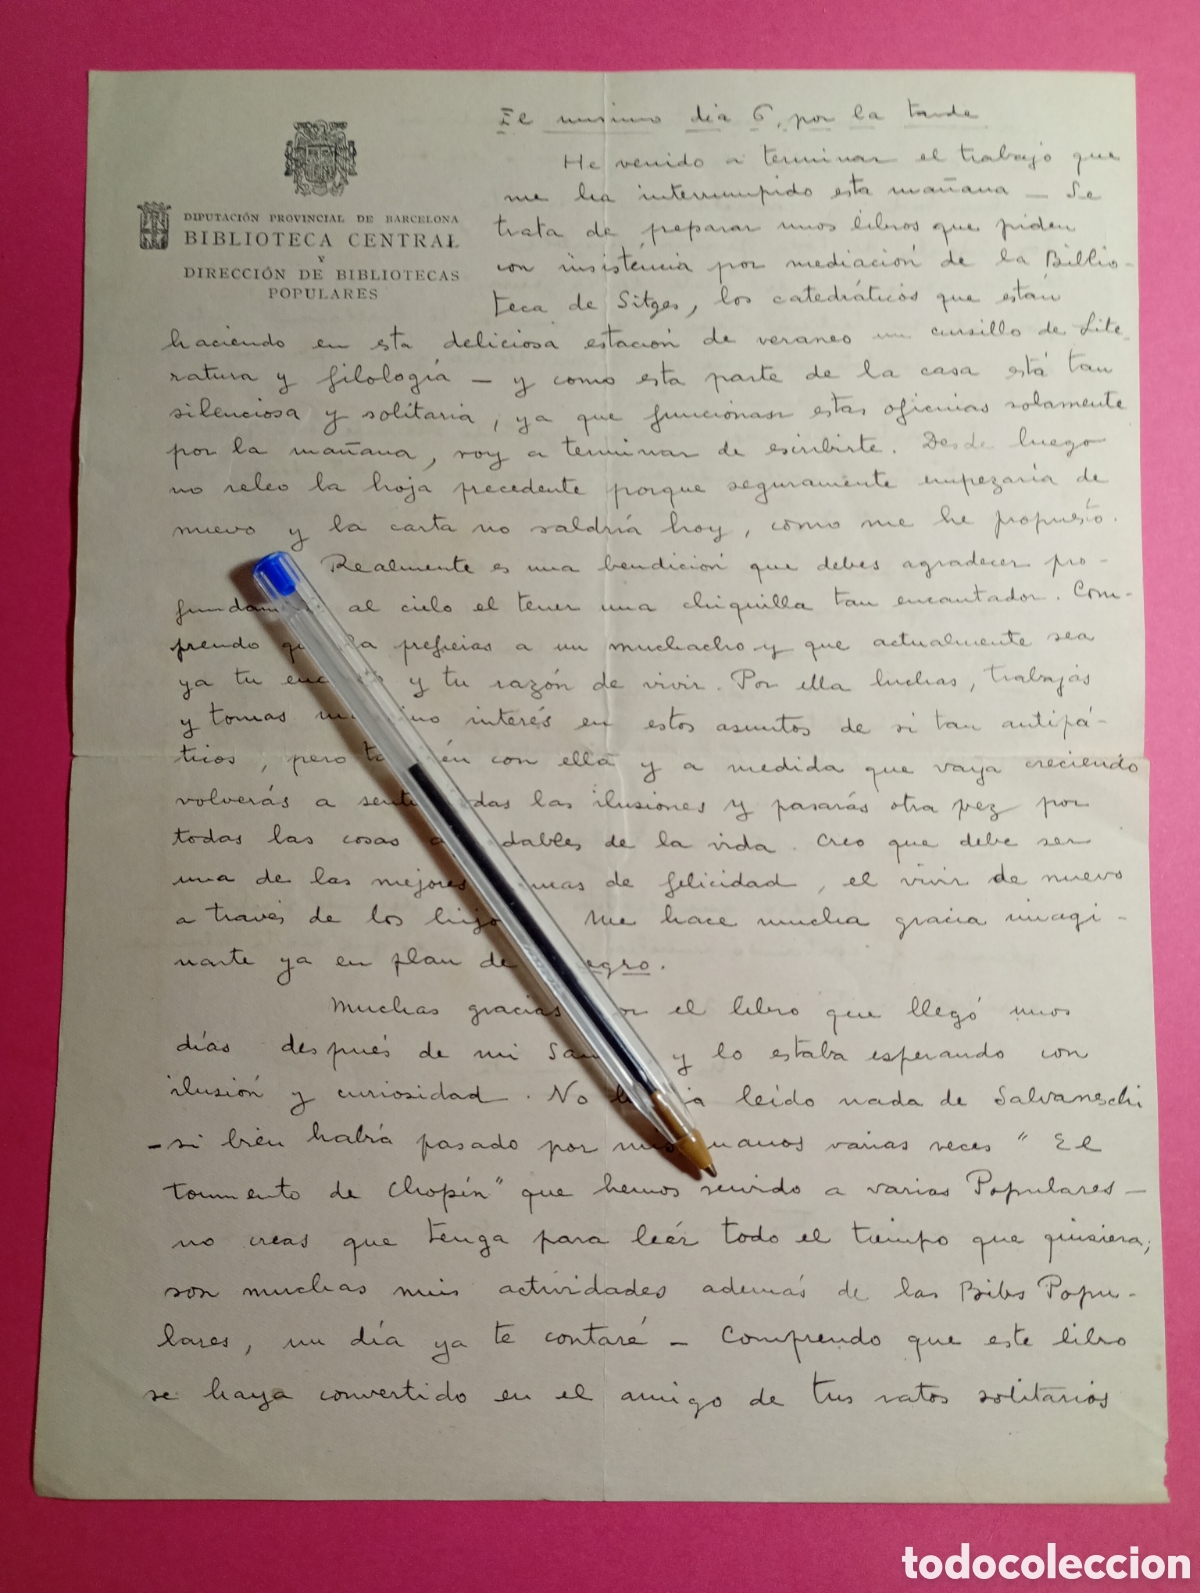 El mismo día 6, por la tarde
DIPUTACIÓN PROVINCIAL DE BARCELONA
BIBLIOTECA CENTRAL
Y
DIRECCIÓN DE BIBLIOTECAS
POPULARES
He venido a terminar el trabajo que
me ha interrumpido esta mañana — Se
trata de preparar unos libros que piden
con insistencia por mediación de la Biblio-
teca de Sitges, los catedráticos que están
haciendo en esta deliciosa estación de veraneo un cursillo de Lite-
ratura y filología — y como esta parte de la casa está tan
silenciosa y solitaria, ya que funcionan estas oficinas solamente
por la mañana, voy a terminar de escribirte. Desde luego
no releo la hoja precedente porque seguramente empezaría de
nuevo y la carta no saldría hoy, como me he propuesto.
Realmente es una bendición que debes agradecer pro-
fundam al cielo el tener una chiquilla tan encantador. Com-
prendo la prefieras a un muchacho y que actualmente sea
ya tu y tu razón de vivir. Por ella luchas, trabajas
y tomas interés en estos asuntos de si tan antipá-
ticos, pero con ella y a medida que vaya creciendo
volverás a las ilusiones y pasarás otra vez por
todas las cosas dables de la vida. Creo que debe ser
una de las mejores de felicidad, el vivir de nuevo
a través de los hijo Me hace mucha gracia imagi-
narte ya en plan de egro.
Muchas gracias por el libro que llegó unos
días después de mi San y lo estaba esperando con
ilusión y curiosidad. No leído nada de Salvaneschi
— si bien había pasado por mis manos varias veces "El
tormento de Chopín" que hemos servido a varias Populares —
no creas que tenga para leér todo el tiempo que quisiera;
son muchas mis actividades además de las Bibs Popu-
lares, un día ya te contaré — Comprendo que este libro
se haya convertido en el amigo de tus ratos solitarios
todocoleccion